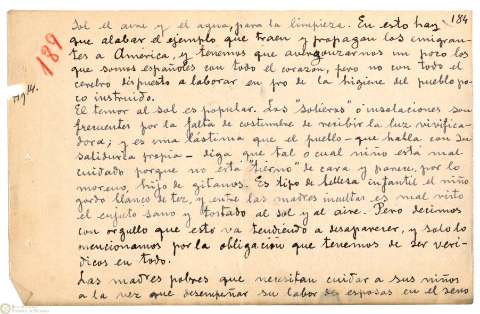 184
189
sol el aire y el agua, para la limpieza. En esto hay
que alabar el ejemplo que traen y propagan los emigran-
tes a América, y tenemos que avergonzarnos un poco los
que somos españoles con todo el corazón, pero no con todo el
cerebro dispuesto a laborar en pro de la higiene del pueblo po-
co instruido.
El temor al sol es popular. Las "soleras" ó insolaciones son
frecuentes por la falta de costumbre de recibir la luz vivifica-
dora; y es una lástima que el pueblo - que habla con su
sabiduría propia - diga que tal o cual niño está mal
cuidado porque no está "tierno" de cara y parece, por lo
moreno, hijo de gitanos. Es tipo de belleza infantil el niño
gordo blanco de tez, y entre las madres incultas es mal visto
el enjuto sano y tostado al sol y al aire. Pero decimos
con orgullo que esto va tendiendo a desaparecer, y solo lo
mencionamos por la obligación que tenemos de ser verí-
dicos en todo.
Las madres pobres que necesitan cuidar a sus niños
a la vez que desempeñar su labor de esposas en el seno